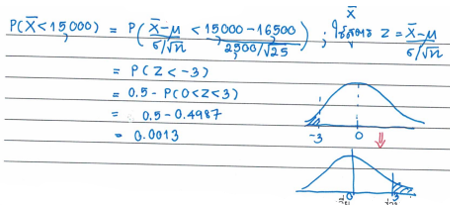 X̄
P(X̄<15,000) = P(X̄-μ/σ/√n < 15000-16500/2500/√25) ; ใช้สูตร Z = X̄-μ/σ/√n
= P(Z<-3)
= 0.5 - P(0<Z<3)
= 0.5 - 0.4987
= 0.0013
-3 0
0 3